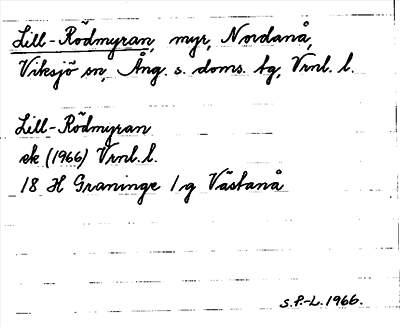 Lill-Rödmyran, myr, Nordanå,
Viksjö sn, Ång. s. doms. tg, Vrnl. l.
Lill-Rödmyran
ek (1966) Vrnl. l.
18 H Graninge 1g Västanå
S.P.-L. 1966.